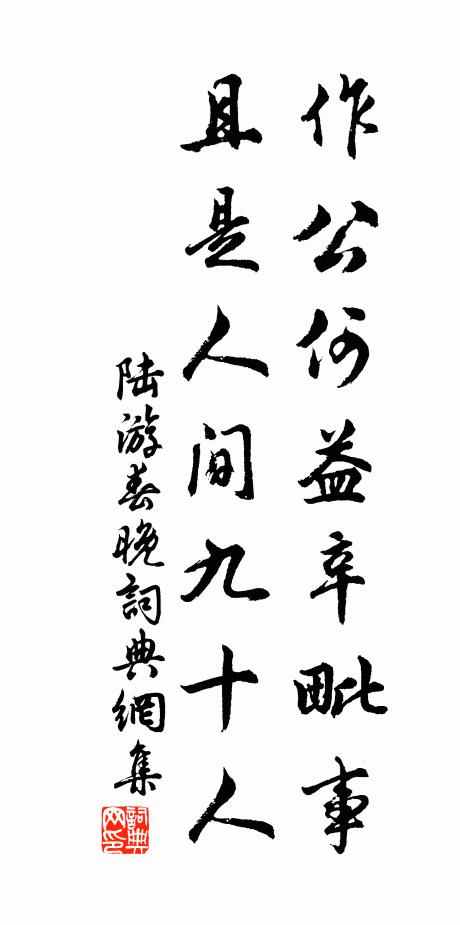 作公何益辛毗事
且是人间九十人
陆游春晚詞典網集
詞典网印